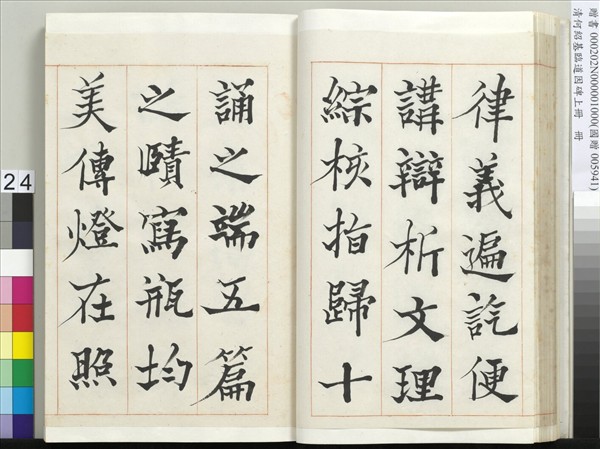 律義遍訖便
講辯析文理
綜核指歸十
誦之端五篇
之賾寫瓶均
美傳燈在照
贈書 000202N000001000(國贈 005941)
清何紹基臨道因碑上冊 冊
24